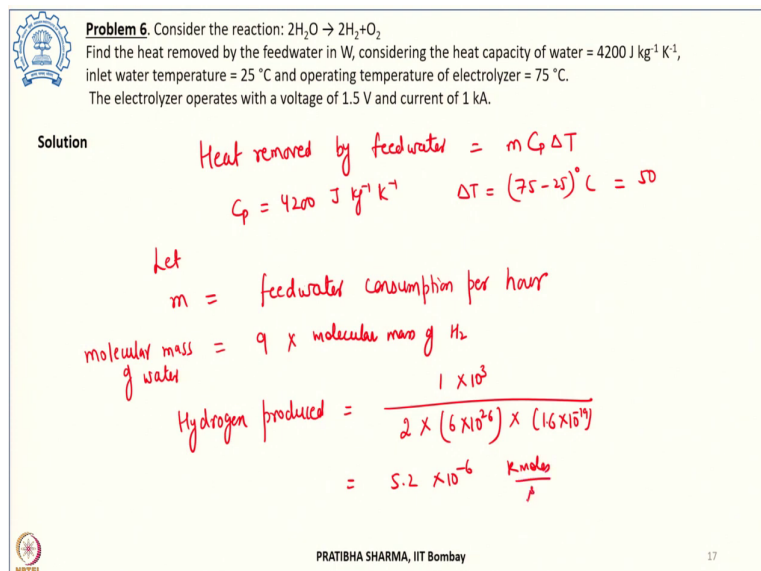 Problem 6. Consider the reaction: 2H₂O → 2H₂+O₂
Find the heat removed by the feedwater in W, considering the heat capacity of water = 4200 J kg⁻¹ K⁻¹,
inlet water temperature = 25 °C and operating temperature of electrolyzer = 75 °C.
The electrolyzer operates with a voltage of 1.5 V and current of 1 kA.
Solution
Heat removed by feedwater = m Cp ΔT
Cp = 4200 J kg⁻¹ K⁻¹ ΔT = (75-25)°C = 50
Let
m = feedwater consumption per hour
molecular mass of water = 9 × molecular mass of H₂
Hydrogen produced = 1 × 10³ / 2 × (6×10²⁶) × (1.6×10⁻¹⁹)
= 5.2 × 10⁻⁶ Kmoles / s
PRATIBHA SHARMA, IIT Bombay
17
NPTEL